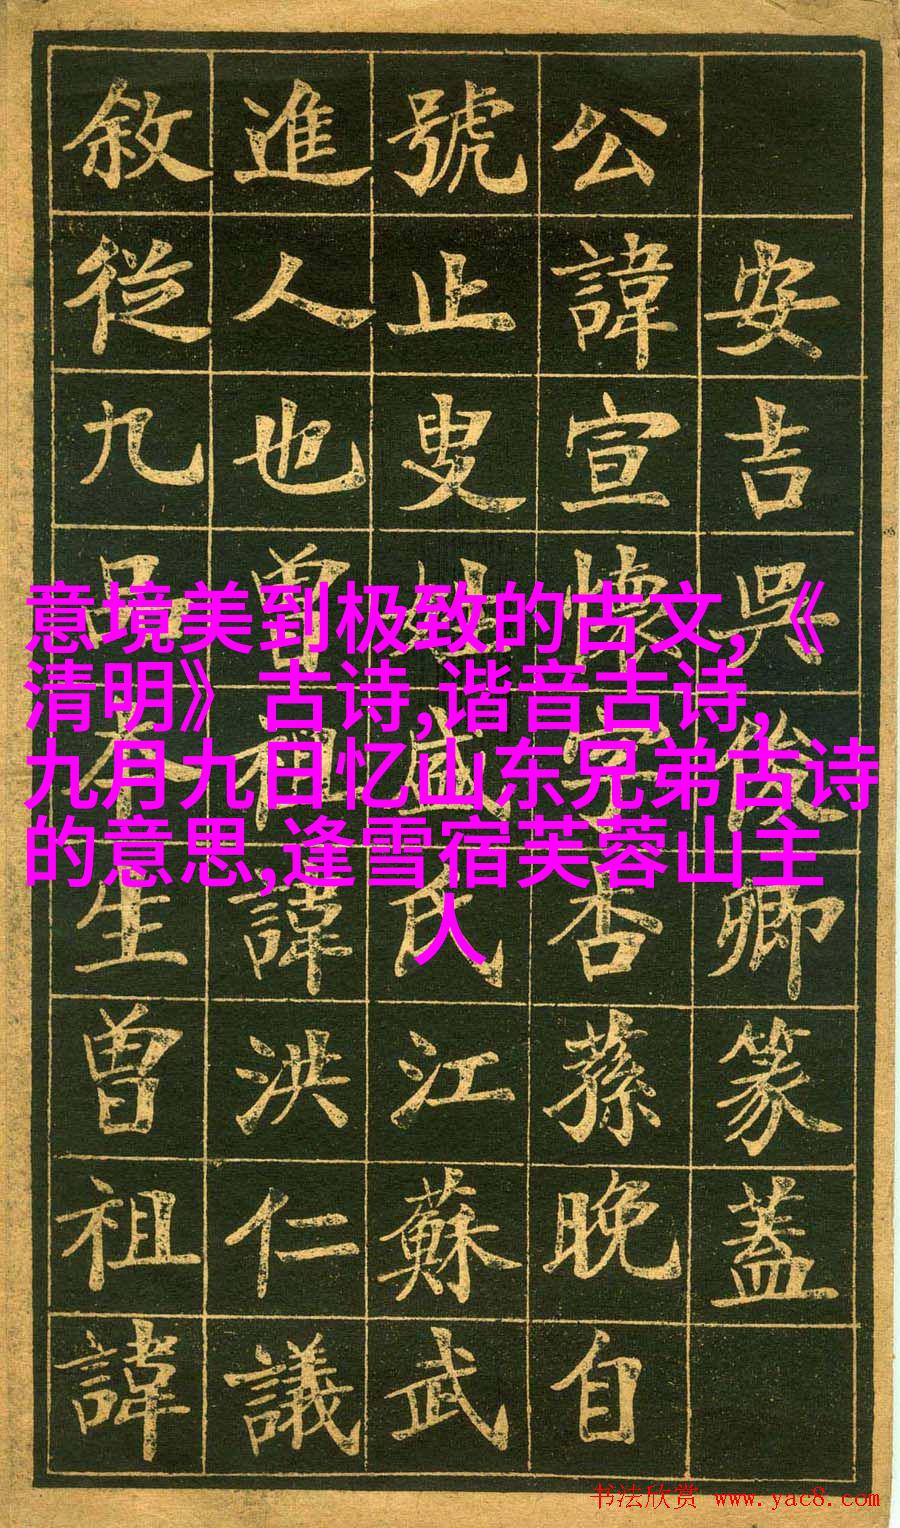 安吉吳俊卿篆蓋
公諱宣懷字杏蓀晚自
號止叟姓盛氏江蘇武
進人也曾祖諱洪仁議
敘從九品本生曾祖諱
意境美到极致的古文,《
清明》古诗,谐音古诗,
九月九日忆山东兄弟古诗
的意思,逢雪宿芙蓉山主
人
书法欣赏 www.yac8.com